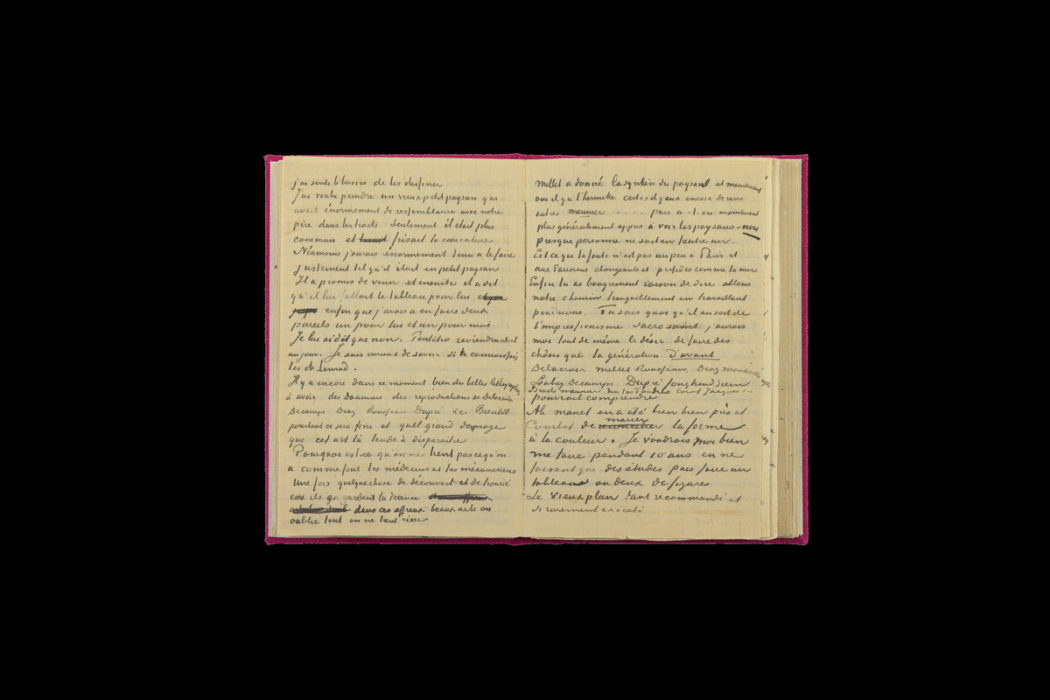 j'ai senti le besoin de les dessiner
J'ai voulu peindre un vieux petit paysan qui
avait énormement de ressemblance avec notre
père dans les traits Seulement il était plus
commun et frisait la caricature
Néamoins j'aurais énormement tenu à le faire
justement tel qu'il était en petit paysan
Il a promis de venir et ensuite il a dit
qu'il lui fallait le tableau pour lui
enfin que j'avais à en faire deux
pareils un pour lui et un pour moi
Je lui ai dit que non. Peutêtre reviendra-t-il
un jour. Je suis curieux de savoir si tu connaissais
les
Il y a encore dans ce moment bien des belles lithographies
à avoir des Daumier des reproductions de Delacroix
Decamps Diaz Rousseau Dupré &c Bientôt
pourtant ce sera fini et quel grand dommage
que cet art là tende à disparaitre
Pourquoi est-ce qu'on ne tient pas ce qu'on
a comme font les médecins et les mécaniciens
Une fois quelque chose de découvert et de trouvé
eux ils en gardent la science
dans ces affreux beaux arts on
oublie tout on ne tient rien
Millet a donné la synthèse du paysan et maintenant
oui il y a Lhermitte certes il y en a encore de rares
autres meunier . . . . puis a-t-on maintenant
plus généralement appris à voir les paysans – non
presque personne ne sait en foutre un.
Est ce que la faute n'est pas un peu à Paris et
aux Parisiens changeants et perfides comme la mer
Enfin tu as bougrement raison de dire allons
notre chemin tranquillement en travaillant
pour nous. Tu sais quoi qu'il en soit de
l'impressionisme sacro saint j'aurais
moi tout de même le désir de faire des
chôses que la génération d'avant
Delacroix Millet Rousseau, Diaz Monticelli
Isabey Decamps Dupré Jongkind Ziem
Israels Meunier un tas d'autres Corot Jacques …
pourrait comprendre
Ah Manet en a été bien bien près et
Courbet de marier la forme
à la couleur. Je voudrais moi bien
me taire pendant 10 ans en ne
faisant que des études puis faire un
tableau ou deux de figures
Le vieux plan tant recommandé et
si rarement exécuté